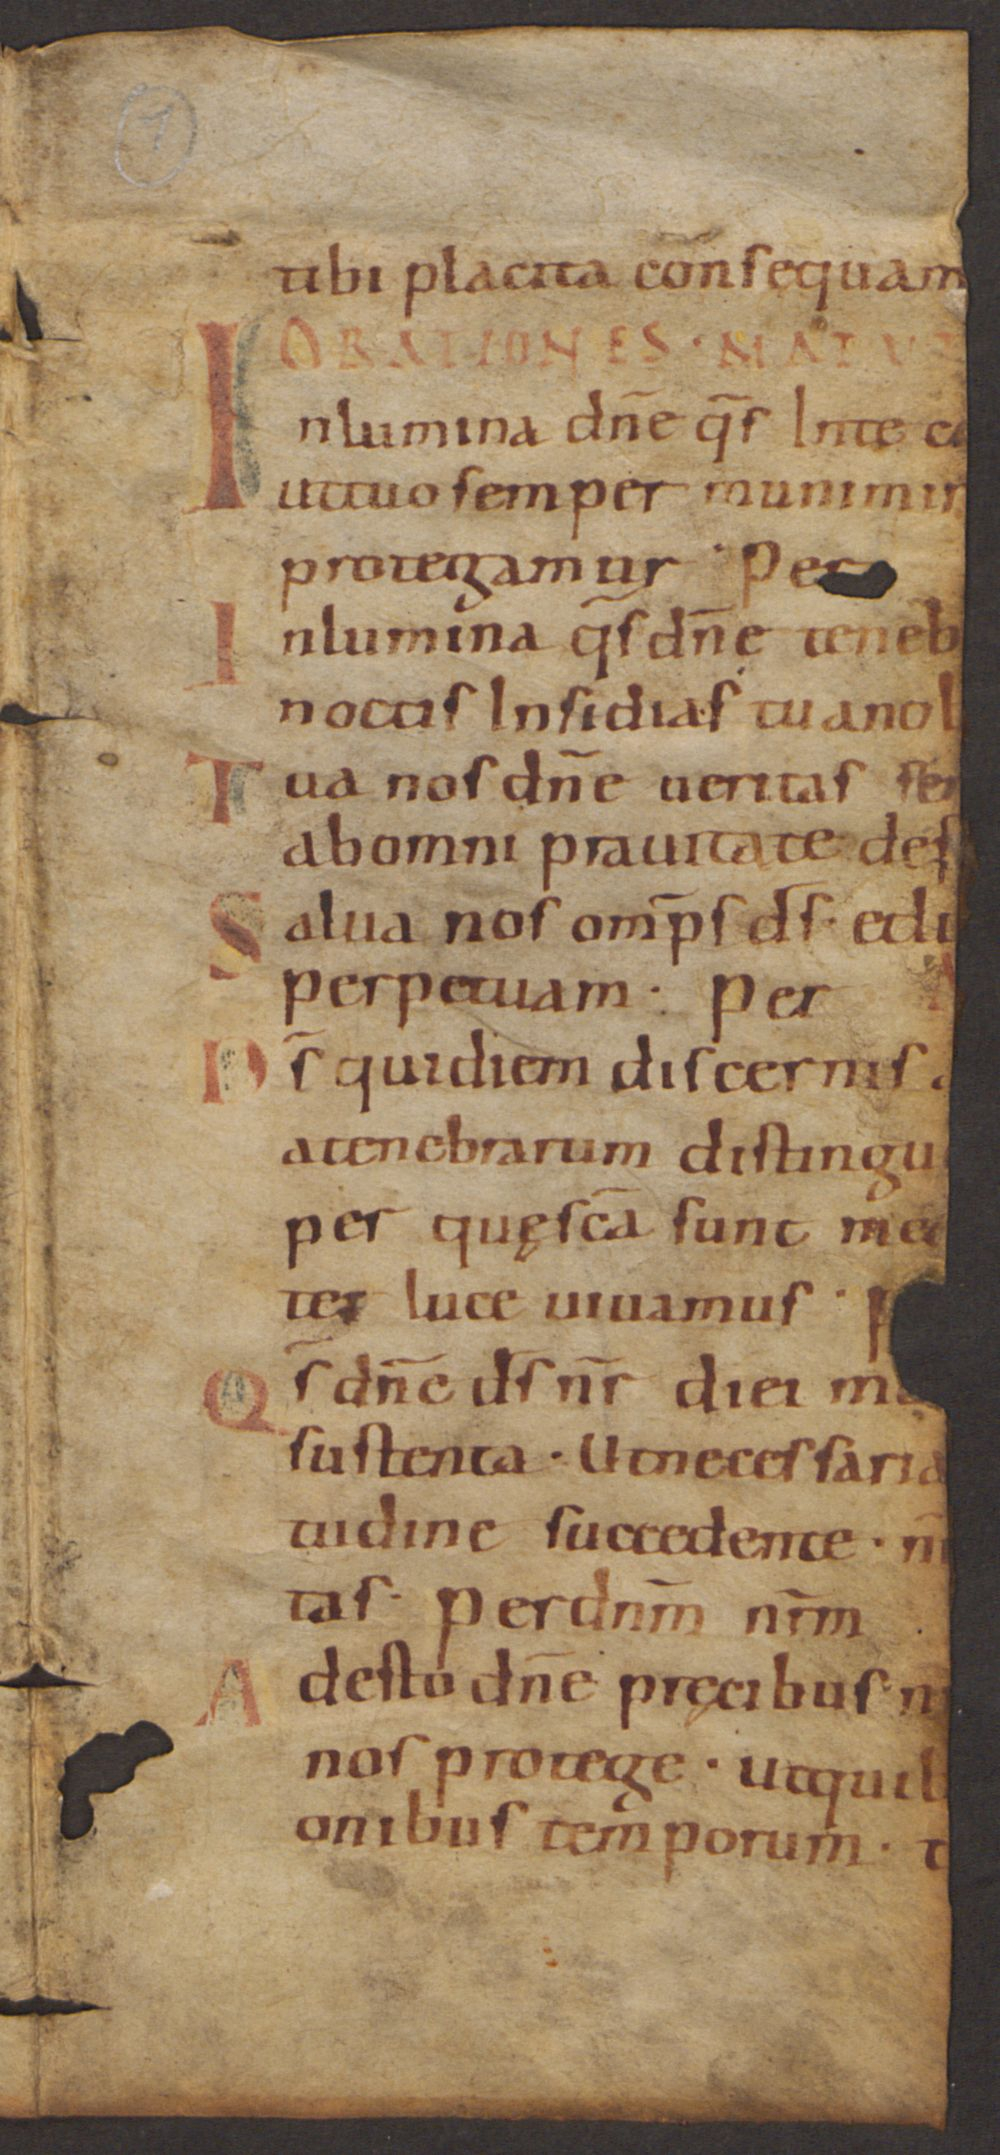 1
tibi placita consequam
ORATIONES · MATU
Inlumina dn̄e q̄s Inte co
uttuo semper munimin
protegamur · Per
Inlumina q̄s dn̄e teneb
noctis Insidias tu anol
Tua nos dn̄e ueritas sem
ab omni prauitate def
Salua nos om̄ps d̄s · edu
perpetuam · Per
Ds̄ quidiem discernis
atenebrarum distingu
per quęscā sunt med
ter luce uiuamus · P
Qs̄ dn̄e d̄s nr̄ diei mo
sustenta · Utnecessaria
tudine succedente ·
tas · Per dnm̄ nr̄m
Adesto dn̄e pręcibus n
nos protege · utquib
onibus temporum · t